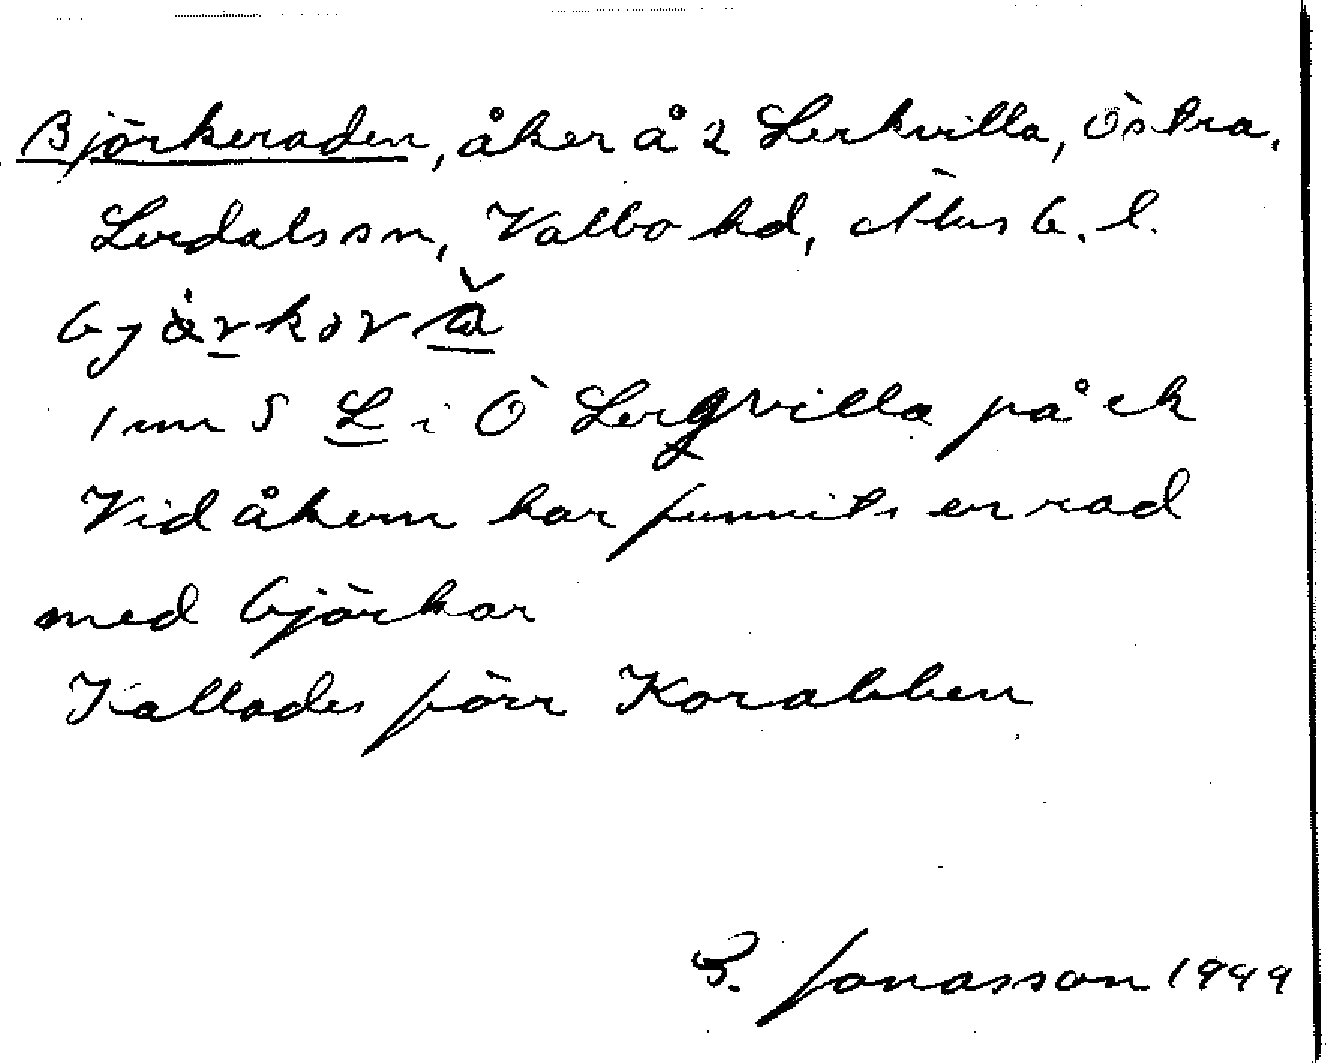 Björkeraden, åker å 2 Lerkvilla, Östra,
Lerdals sn, Valbo hd, Älvsb. l.
1 mm S L i Ö Lergvilla på ek
Vid åkern har funnits en rad
med björkar
Kallades förr Korabben
G. Jonasson 1949